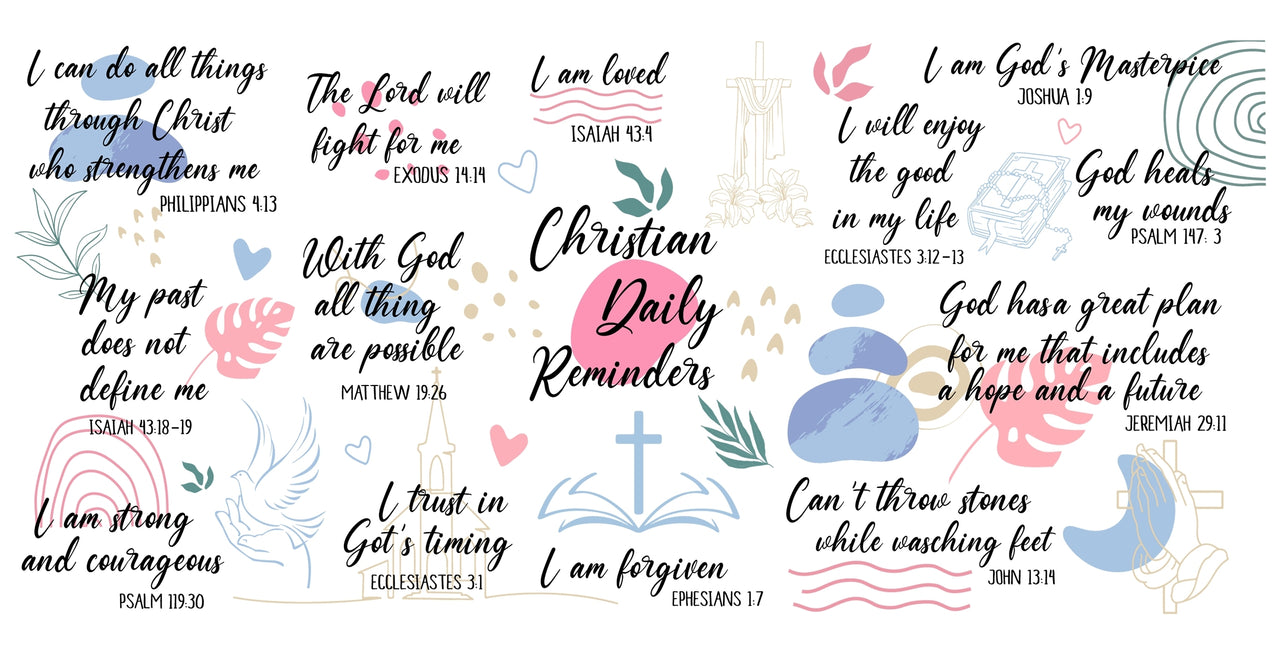 I can do all things
through Christ
who strengthens me
PHILIPPIANS 4:13
The Lord will
fight for me
EXODUS 14:14
I am loved
ISAIAH 43:4
I am God's Masterpice
JOSHUA 1:9
I will enjoy
the good
in my life
ECCLESIASTES 3:12-13
God heals
my wounds
PSALM 147: 3
My past
does not
define me
ISAIAH 43:18-19
With God
all thing
are possible
MATTHEW 19:26
Christian
Daily
Reminders
God has a great plan
for me that includes
a hope and a future
JEREMIAH 29:11
I am strong
and courageous
PSALM 119:30
I trust in
Got's timing
ECCLESIASTES 3:1
I am forgiven
EPHESIANS 1:7
Can't throw stones
while wasching feet
JOHN 13:14